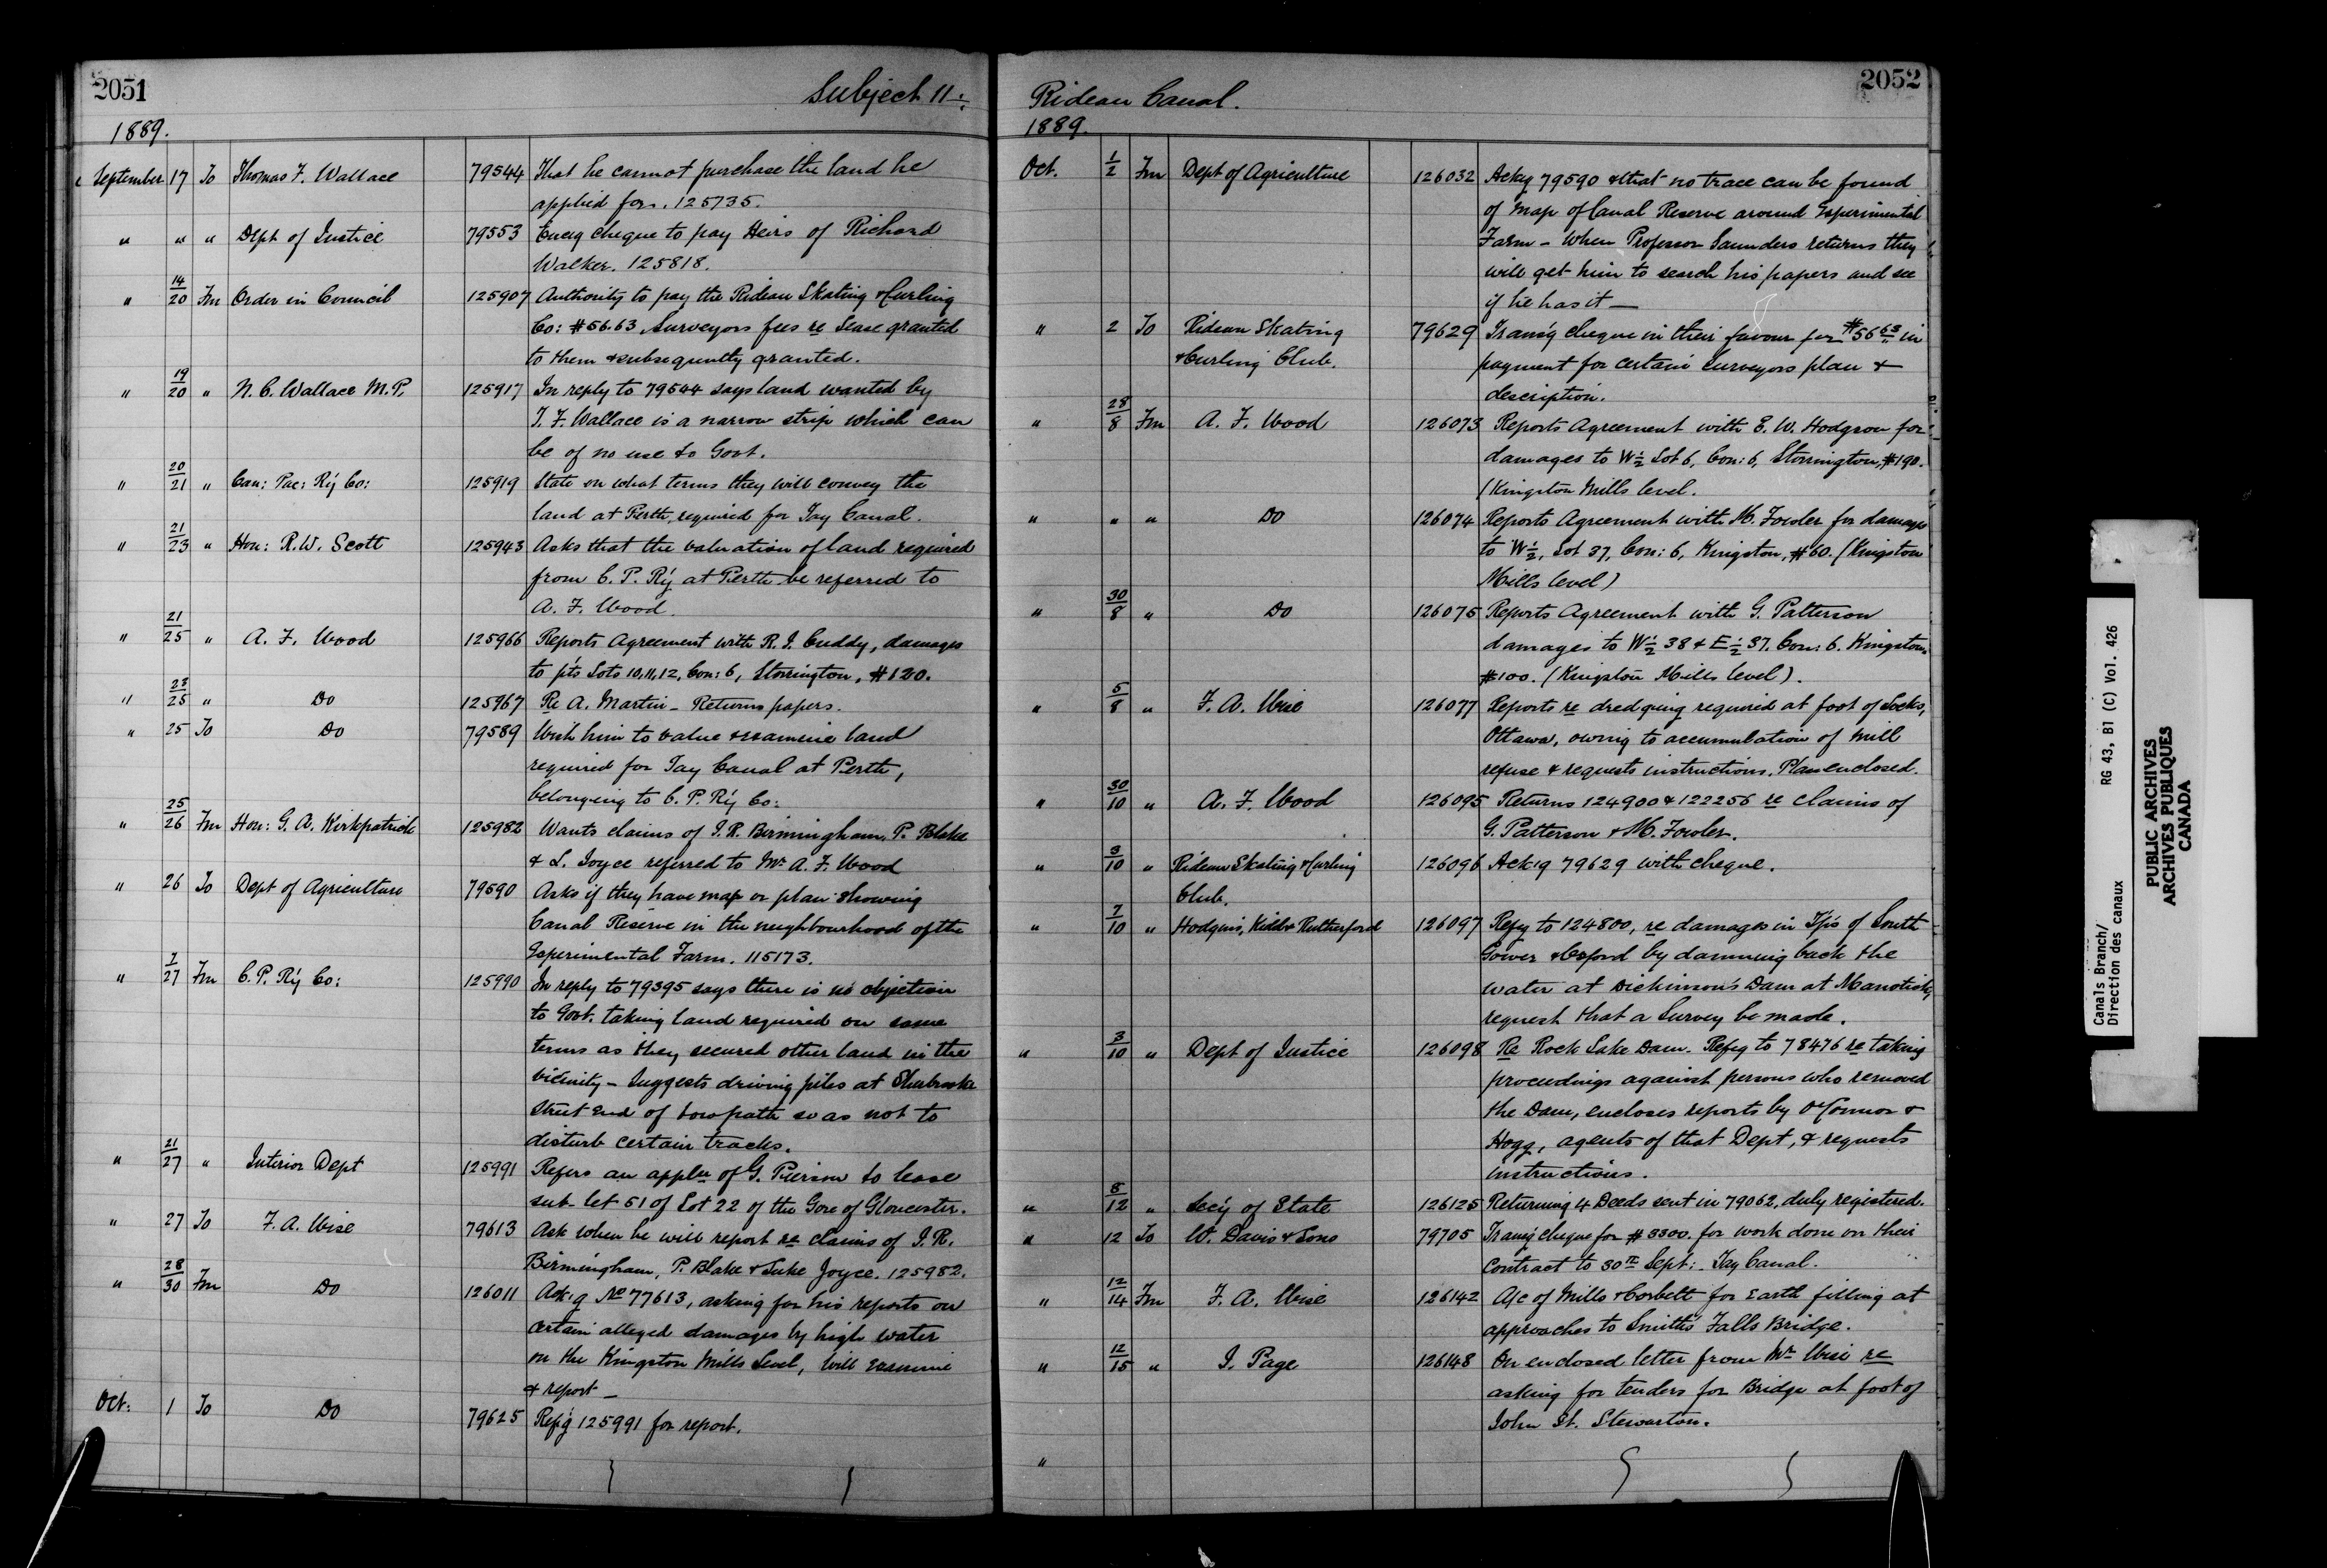 2051
Subject 11:
1889.
September 17 To Thomas F. Wallace 79544 That he cannot purchase the land he
applied for. 125735.
" " " Dept of Justice 79553 Encg cheque to pay Heirs of Richard
Walker. 125818.
" 14/20 Fm Order in Council 125907 Authority to pay the Rideau Skating & Curling
Co: $56.63, Surveyors fees re Lease granted
to them & subsequently granted.
" 19/20 " N. C. Wallace M.P. 125917 In reply to 79544 says land wanted by
T. F. Wallace is a narrow strip which can
be of no use to Govt.
" 20/21 " Can: Pac: R'y Co: 125919 State on what terms they will convey the
land at Perth, required for Tay Canal.
" 21/23 " Hon: R. W. Scott 125943 Asks that the valuation of land required
from C. P. R'y at Perth be referred to
A. F. Wood.
" 21/25 " A. F. Wood 125966 Reports Agreement with R. J. Cuddy, damages
to pts Lots 10, 11, 12, Con: 6, Storrington, $120.
" 23/25 " Do 125967 Re A. Martin - Returns papers.
" 25 To Do 79589 Wish him to value & examine land
required for Tay Canal at Perth,
belonging to C. P. R'y Co:
" 25/26 Fm Hon: G. A. Kirkpatrick 125982 Wants claims of J. R. Birmingham, P. Blake
& L. Joyce referred to Mr A. F. Wood
" 26 To Dept of Agriculture 79590 Asks if they have map or plan showing
Canal Reserve in the neighbourhood of the
Experimental Farm. 115173.
" 7/27 Fm C. P. R'y Co: 125990 In reply to 79395 says there is no objection
to Govt. taking land required on same
terms as they secured other land in the
vicinity - Suggests driving piles at Sherbrooke
Street end of towpath so as not to
disturb certain tracks.
" 21/27 " Interior Dept 125991 Refers an appln of G. Pierson to lease
sub-let 51 of Lot 22 of the Gore of Gloucester.
" 27 To F. A. Wise 79613 Ask when he will report re claims of J. R.
Birmingham, P. Blake & Luke Joyce. 125982.
" 28/30 Fm Do 126011 Ack'g No 77613, asking for his reports on
certain alleged damages by high water
on the Kingston Mills Level, will examine
& report -
Oct: 1 To Do 79625 Ref'g 125991 for report.
2052
Rideau Canal.
1889.
Oct. 1/2 Fm Dept of Agriculture 126032 Ackg 79590 & that no trace can be found
of Map of Canal Reserve around Experimental
Farm - When Professor Saunders returns they
will get him to search his papers and see
if he has it -
" 2 To Rideau Skating 79629 Trans'g cheque in their favour for $56 63 in
& Curling Club. payment for certain Surveyors plan &
description.
" 28/8 Fm A. F. Wood 126073 Reports Agreement with E. W. Hodgson for
damages to W½ Lot 6, Con: 6, Storrington, $190.
(Kingston Mills level.
" " " Do 126074 Reports Agreement with M. Fowler for damages
to W½, Lot 37, Con: 6, Kingston, $60. (Kingston
Mills level)
" 30/8 " Do 126075 Reports Agreement with G. Patterson
damages to W½ 38 & E½ 37, Con: 6. Kingston,
$100. (Kingston Mills level).
" 5/8 " F. A. Wise 126077 Reports re dredging required at foot of Locks,
Ottawa, owing to accumulation of mill
refuse & requests instructions. Plan enclosed.
" 30/10 " A. F. Wood 126095 Returns 124900 & 122256 re claims of
G. Patterson & M. Fowler.
" 3/10 " Rideau Skating & Curling 126096 Ack'g 79629 with cheque.
Club.
" 7/10 " Hodgins, Kidd & Rutherford 126097 Refg to 124800, re damages in T'ps of South
Gower & Oxford by damming back the
water at Dickinson's Dam at Manotick,
request that a Survey be made.
" 3/10 " Dept of Justice 126098 Re Rock Lake Dam. Refg to 78476 re taking
proceedings against persons who removed
the Dam, encloses reports by O'Connor &
Hogg, agents of that Dept, & requests
instructions.
" 8/12 " Sec'y of State 126125 Returning 4 Deeds sent in 79062, duly registered.
" 12 To W. Davis & Sons 79705 Trans'g cheque for $3300. for work done on their
Contract to 30th Sept: Tay Canal.
" 12/14 Fm F. A. Wise 126142 A/c of Mills & Corbett for Earth filling at
approaches to Smith's Falls Bridge.
" 12/15 " J. Page 126148 On enclosed letter from Mr Wise re
asking for tenders for Bridge at foot of
John St. Stewarton.
"
Canals Branch/ RG 43, B1 (C) Vol. 426
Direction des canaux
PUBLIC ARCHIVES
ARCHIVES PUBLIQUES
CANADA